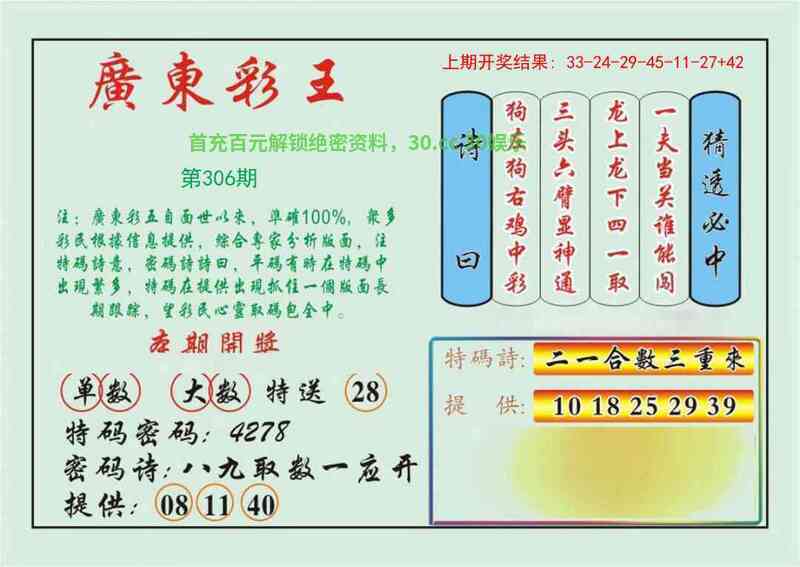 廣東彩王
上期开奖结果: 33-24-29-45-11-27+42
首充百元解锁绝密资料，30.cc30娱乐
第306期
注：廣東彩五自面世以來，準確100%，衆多
彩民根據信息提供，綜合專家分析版面，注
特碼詩意，密碼詩詩曰，平碼有時在特碼中
出現繁多，特碼在提供出現抓住一個版面長
期跟踪，望彩民心靈取碼包全中。
诗曰
狗左狗右鸡中彩
三头六臂显神通
龙上龙下四一取
一夫当关谁能闯
猜透必中
本期開獎
单数 大数 特送 28
特码密码: 4278
密码诗:八九取数一应开
提供: 08 11 40
特碼詩: 二一合數三重來
提供: 10 18 25 29 39